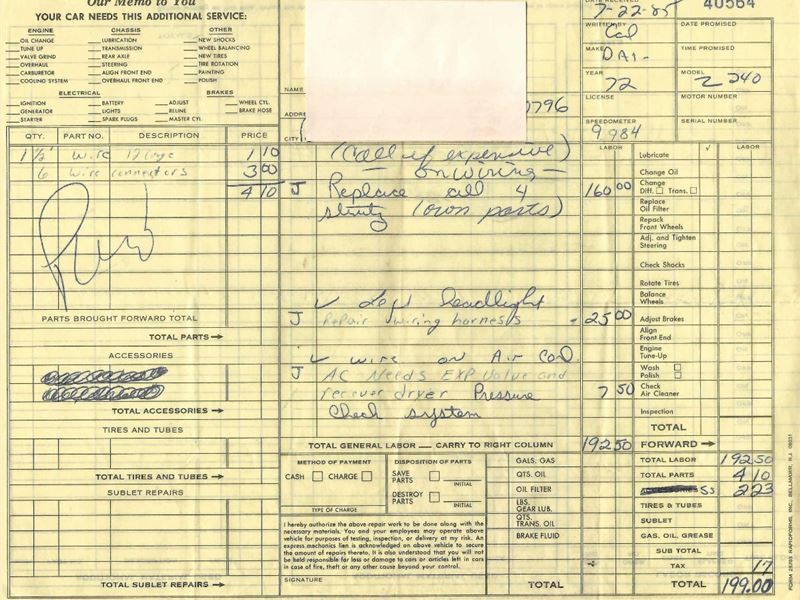 Our Memo to You
YOUR CAR NEEDS THIS ADDITIONAL SERVICE:
ENGINE CHASSIS OTHER
OIL CHANGE LUBRICATION NEW SHOCKS
TUNE UP TRANSMISSION WHEEL BALANCING
VALVE GRIND REAR AXLE NEW TIRES
OVERHAUL STEERING TIRE ROTATION
CARBURETOR ALIGN FRONT END PAINTING
COOLING SYSTEM OVERHAUL FRONT END POLISH
ELECTRICAL BRAKES
IGNITION BATTERY ADJUST WHEEL CYL.
GENERATOR LIGHTS RELINE BRAKE HOSE
STARTER SPARK PLUGS MASTER CYL.
NAME
ADDRE
0796
CITY
DATE RECEIVED 7-22-85
40564
DATE PROMISED
WRITTEN BY Cal
MAKE DAT-
TIME PROMISED
YEAR 72
MODEL Z 240
LICENSE
MOTOR NUMBER
SPEEDOMETER 9984
SERIAL NUMBER
QTY. PART NO. DESCRIPTION PRICE
1 1/2' Wire 1 10
6 wire connectors 3 00
4 10
PARTS BROUGHT FORWARD TOTAL
TOTAL PARTS →
ACCESSORIES
TOTAL ACCESSORIES →
TIRES AND TUBES
TOTAL TIRES AND TUBES →
SUBLET REPAIRS
TOTAL SUBLET REPAIRS →
LABOR
(call if expensive)
on wiring
J Replace all 4 160 00
struts (own parts)
✓ Left headlight
J Repair wiring harness - 25 00
✓ wire on Air Cond.
J AC Needs EXP Valve and
reciever dryer Pressure 7 50
Check system
TOTAL GENERAL LABOR — CARRY TO RIGHT COLUMN 192 50
METHOD OF PAYMENT
CASH CHARGE
TYPE OF CHARGE
DISPOSITION OF PARTS
SAVE PARTS INITIAL
DESTROY PARTS INITIAL
I hereby authorize the above repair work to be done along with the
necessary materials. You and your employees may operate above
vehicle for purposes of testing, inspection, or delivery at my risk. An
express mechanics lien is acknowledged on above vehicle to secure
the amount of repairs thereto. It is also understood that you will not
be held responsible for loss or damage to cars or articles left in cars
in case of fire, theft or any other cause beyond your control.
SIGNATURE
GALS. GAS
QTS. OIL
OIL FILTER
LBS. GEAR LUB.
QTS. TRANS. OIL
BRAKE FLUID
TOTAL
✓ LABOR
Lubricate
Change Oil
Change Diff. Trans.
Replace Oil Filter
Repack Front Wheels
Adj. and Tighten Steering
Check Shocks
Rotate Tires
Balance Wheels
Adjust Brakes
Align Front End
Engine Tune-Up
Wash Polish
Check Air Cleaner
Inspection
TOTAL
FORWARD →
TOTAL LABOR 192 50
TOTAL PARTS 4 10
SS 2 23
TIRES & TUBES
SUBLET
GAS, OIL, GREASE
SUB TOTAL
TAX 17
TOTAL 199.00